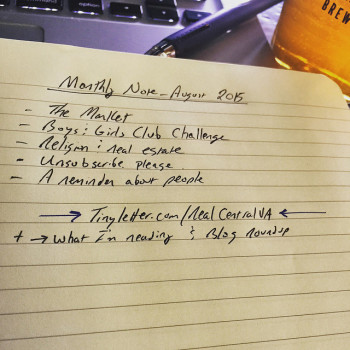 BREW
Monthly Note - August 2015
- The Market
- Boys & Girls Club Challenge
- Religion & real estate
- Unsubscribe please
- A reminder about people
→ Tinyletter.com/RealCentralVA ←
+ → What I'm reading & Blog Roundup